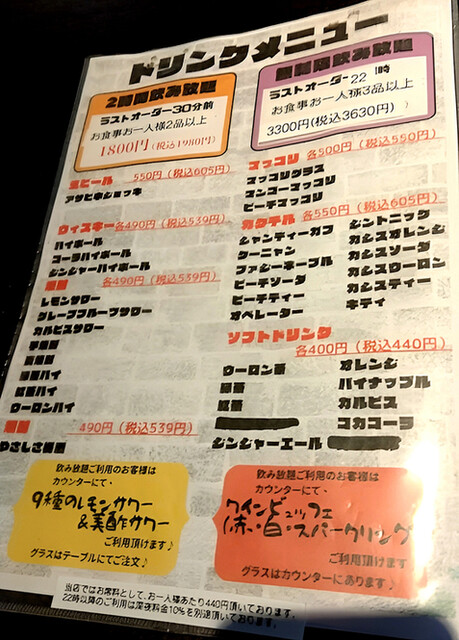 ドリンクメニュー
2時間飲み放題
ラストオーダー30分前
お食事お一人様2品以上
1800円(税込1980円)
無制限飲み放題
ラストオーダー22時
お食事お一人様3品以上
3300円(税込3630円)
生ビール 550円(税込605円)
アサヒ中ジョッキ
ウィスキー 各490円(税込539円)
ハイボール
コーラハイボール
ジンジャーハイボール
各490円(税込539円)
レモンサワー
グレープフルーツサワー
カルピスサワー
緑茶ハイ
紅茶ハイ
ウーロンハイ
490円(税込539円)
マッコリ 各500円(税込550円)
マッコリグラス
マンゴーマッコリ
ピーチマッコリ
カクテル 各550円(税込605円)
シャンディーガフ
クーニャン
ファジーネーブル
ピーチソーダ
ピーチティー
オペレーター
ジントニック
カシスオレンジ
カシスソーダ
カシスウーロン
カシスティー
キティ
ソフトドリンク
各400円(税込440円)
ウーロン茶
緑茶
紅茶
ジンジャーエール
オレンジ
パイナップル
カルピス
コカコーラ
飲み放題ご利用のお客様は
カウンターにて・
9種のレモンサワー
&美酢サワー
ご利用頂けます♪
グラスはテーブルにてご注文♪
飲み放題ご利用のお客様は
カウンターにて・
ワインビュッフェ
(赤・白・スパークリング
ご利用頂けます♪
グラスはカウンターにあります♪
当店ではお席料として、お一人様あたり440円頂いております。
22時以降のご利用は深夜料金10%を別途頂いております。